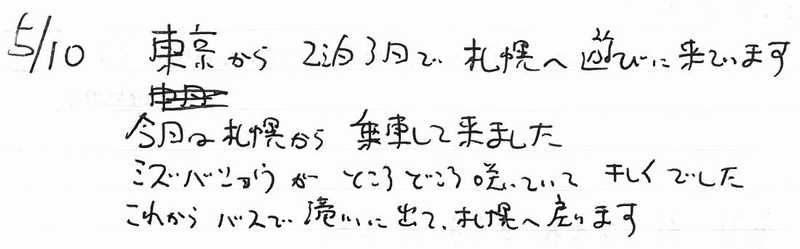 5/10 東京から 2泊3日で 札幌へ 遊びに来ています
今日は札幌から 乗車して来ました
ミズバショウが ところどころ咲いていて キレイでした
これから バスで 滝川に出て、札幌へ戻ります